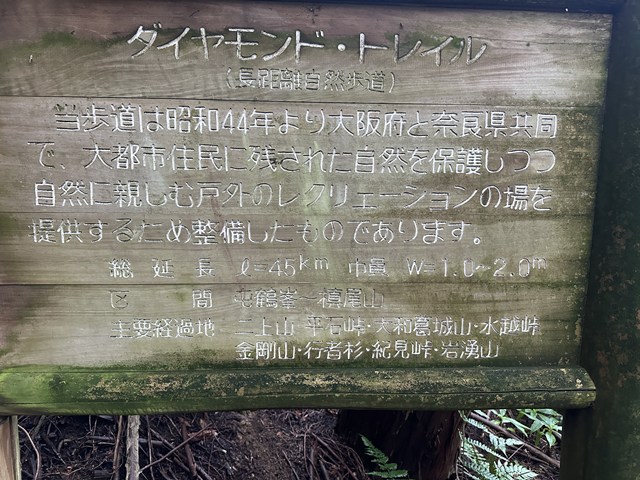 ダイヤモンド・トレイル
(長距離自然歩道)
当歩道は昭和44年より大阪府と奈良県共同
で、大都市住民に残された自然を保護しつつ
自然に親しむ戸外のレクリェーションの場を
提供するため整備したものであります。
総延長 ℓ=45km 巾員 W=1.0~2.0m
区間 屯鶴峯~槙尾山
主要経過地 二上山・平石峠・大和葛城山・水越峠
金剛山・行者杉・紀見峠・岩湧山